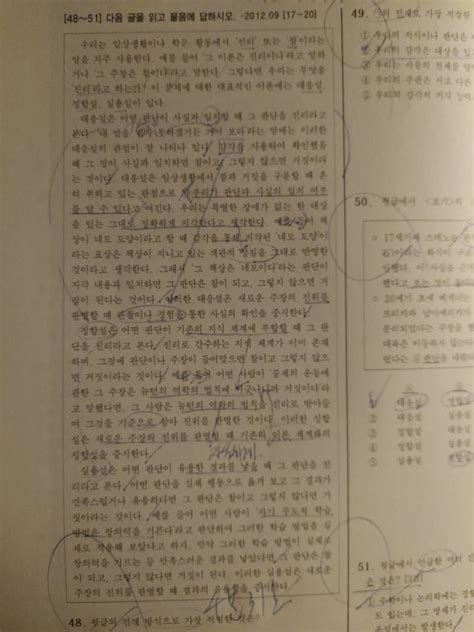 [48~51] 다음 글을 읽고 물음에 답하시오. -2012.09 [17~20]
우리는 일상생활이나 학문 활동에서 '진리' 또는 '참'이라는
말을 자주 사용한다. 예를 들어 '그 이론은 진리이다'라고 말하
거나 '그 주장은 참이다'라고 말한다. 그렇다면 우리는 무엇을
'진리'라고 하는가? 이 문제에 대한 대표적인 이론에는 대응설,
정합설, 실용설이 있다.
대응설은 어떤 판단이 사실과 일치할 때 그 판단을 진리라고
본다. '내 말을 못하겠거든 가서 보라'라는 말에는 이러한
대응설의 관점이 잘 나타나 있다. 감각을 사용하여 확인했을
때 그 말이 사실과 일치하면 참이고, 그렇지 않으면 거짓이라
는 것이다. 대응설은 일상생활에서 참과 거짓을 구분할 때 흔
히 취하고 있는 관점으로 우리가 판단과 사실의 일치 여부
를 알 수 있다고 여긴다. 우리는 특별한 장애가 없는 한 대상
을 있는 그대로 정확하게 지각한다고 생각한다. 예를 들어 책
상이 네모 모양이라고 할 때 감각을 통해 지각된 '네모 모양'이
라는 표상은 책상이 지니고 있는 객관적 성질을 그대로 반영한
것이라고 생각한다. 그래서 '그 책상은 네모이다'라는 판단이
지각 내용과 일치하면 그 판단은 참이 되고, 그렇지 않으면 거
짓이 된다는 것이다. 이러한 대응설은 새로운 주장의 진위를
판별할 때 관찰이나 경험을 통한 사실의 확인을 중시한다.
정합설은 어떤 판단이 기존의 지식 체계에 부합할 때 그 판
단을 진리라고 본다. 진리로 간주하는 지식 체계가 이미 존재
하며, 그것에 판단이나 주장이 들어맞으면 참이고 그렇지 않으
면 거짓이라는 것이다. 예를 들어 어떤 사람이 '물체의 운동에
관한 그 주장은 뉴턴의 역학의 법칙에 어긋나니까 거짓이다'라
고 말했다면, 그 사람은 뉴턴의 역학의 법칙을 진리로 받아들
여 그것을 기준으로 삼아 진위를 판별한 것이다. 이러한 정합
설은 새로운 주장의 진위를 판별할 때 기존의 이론 체계와의
정합성을 중시한다.
실용설은 어떤 판단이 유용한 결과를 낳을 때 그 판단을 진
리라고 본다. 어떤 판단을 실제 행동으로 옮겨 보고 그 결과가
만족스럽거나 유용하다면 그 판단은 참이고 그렇지 않다면 거
짓이라는 것이다. 예를 들어 어떤 사람이 '자기 주도적 학습
방법은 창의력을 기른다'라고 판단하여 그러한 학습 방법을 실
제로 적용해 보았다고 하자. 만약 그러한 학습 방법이 실제로
창의력을 기르는 등 만족스러운 결과를 낳았다면 그 판단은 참
이 되고, 그렇지 않다면 거짓이 된다. 이러한 실용설은 새로운
주장의 진위를 판별할 때 결과의 유용성을 중시한다.
48. 윗글의 전개 방식으로 가장 적절한 것은?
49.
전제로 가장 적절한
① 우리의 지식이나 판단은
② 우리의 감각은 대상을
③ 우리는 사물의 전체를
④ 우리의 주관은
⑤ 우리의 감각적 지각 능력
50. 윗글에서 <보기>의
○ 17세기에 스테노는
○ 20세기 초에 베게너는
프리카와 남아메리카가
분리되었다는
대응설 정합설
51. 윗글에서 언급한 여러
은 것은? [3점]
① 수학이나 논리학에는